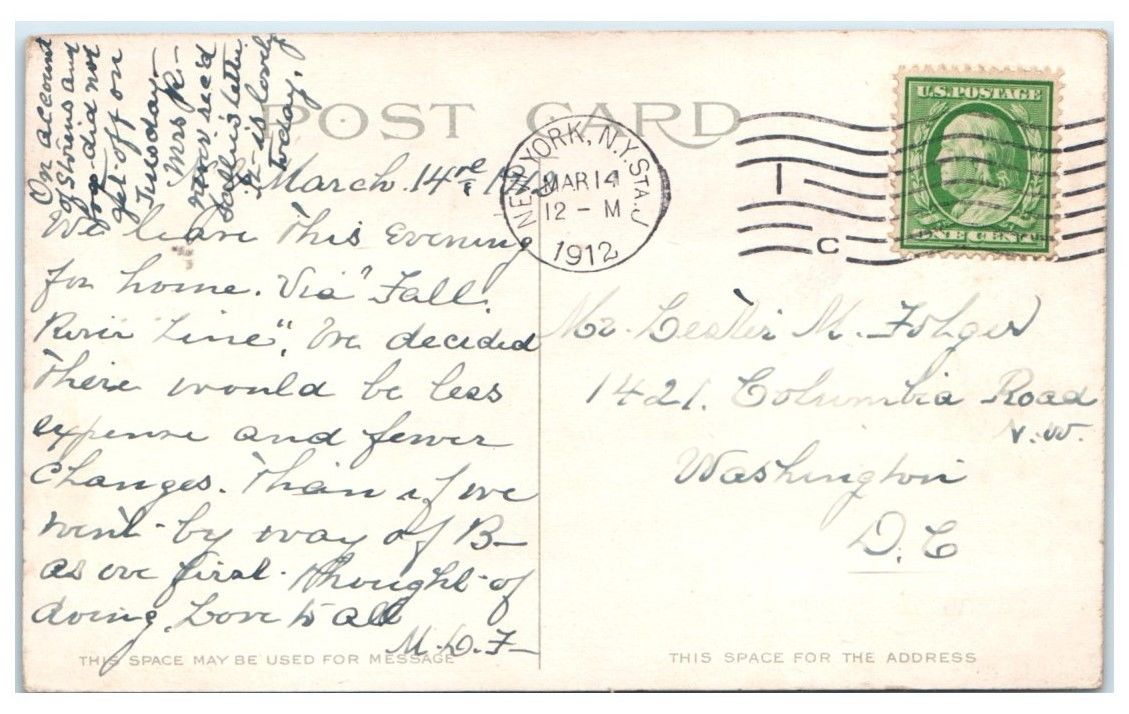 POST CARD
U.S. POSTAGE
ONE CENT
NEW YORK, N.Y. STA. J
MAR 14
12 - M
1912
1
C
March 14
We leave this evening
for home. Via "Fall
River Line". We decided
there would be less
expense and fewer
changes. Than if we
went by way of B—
as we first thought of
doing. Love to all
M. D. F—
On account
of storms and
fog did not
get off on
Tuesday,
Mrs R—
never rec'd
Sallie's letter.
It is lovely
today.
Mr. Lester M. Folger
1421. Columbia Road
N.W.
Washington
D.C
THIS SPACE MAY BE USED FOR MESSAGE
THIS SPACE FOR THE ADDRESS